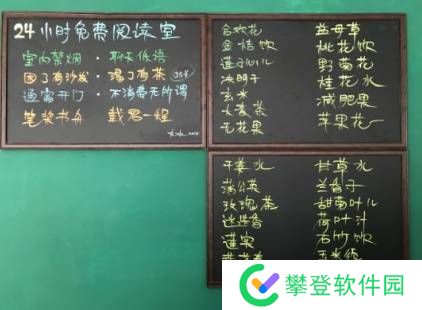 24小时免费阅读室
室内禁烟 · 聊天低语
困了有沙发 · 渴了有茶
通宵开门 · 不消费无所谓
笔浆书舟 · 载君一程
合欢花
金桔饮
莲子心儿
决明子
玄米
大麦茶
无花果
益母草
桃花饮
野菊花
桂花水
减肥果
苹果花
干姜水
蒲公英
玫瑰茶
迷迭香
莲实
甘草水
兰香子
甜南叶儿
荷叶汁
石竹饮
玉米须
攀登软件园